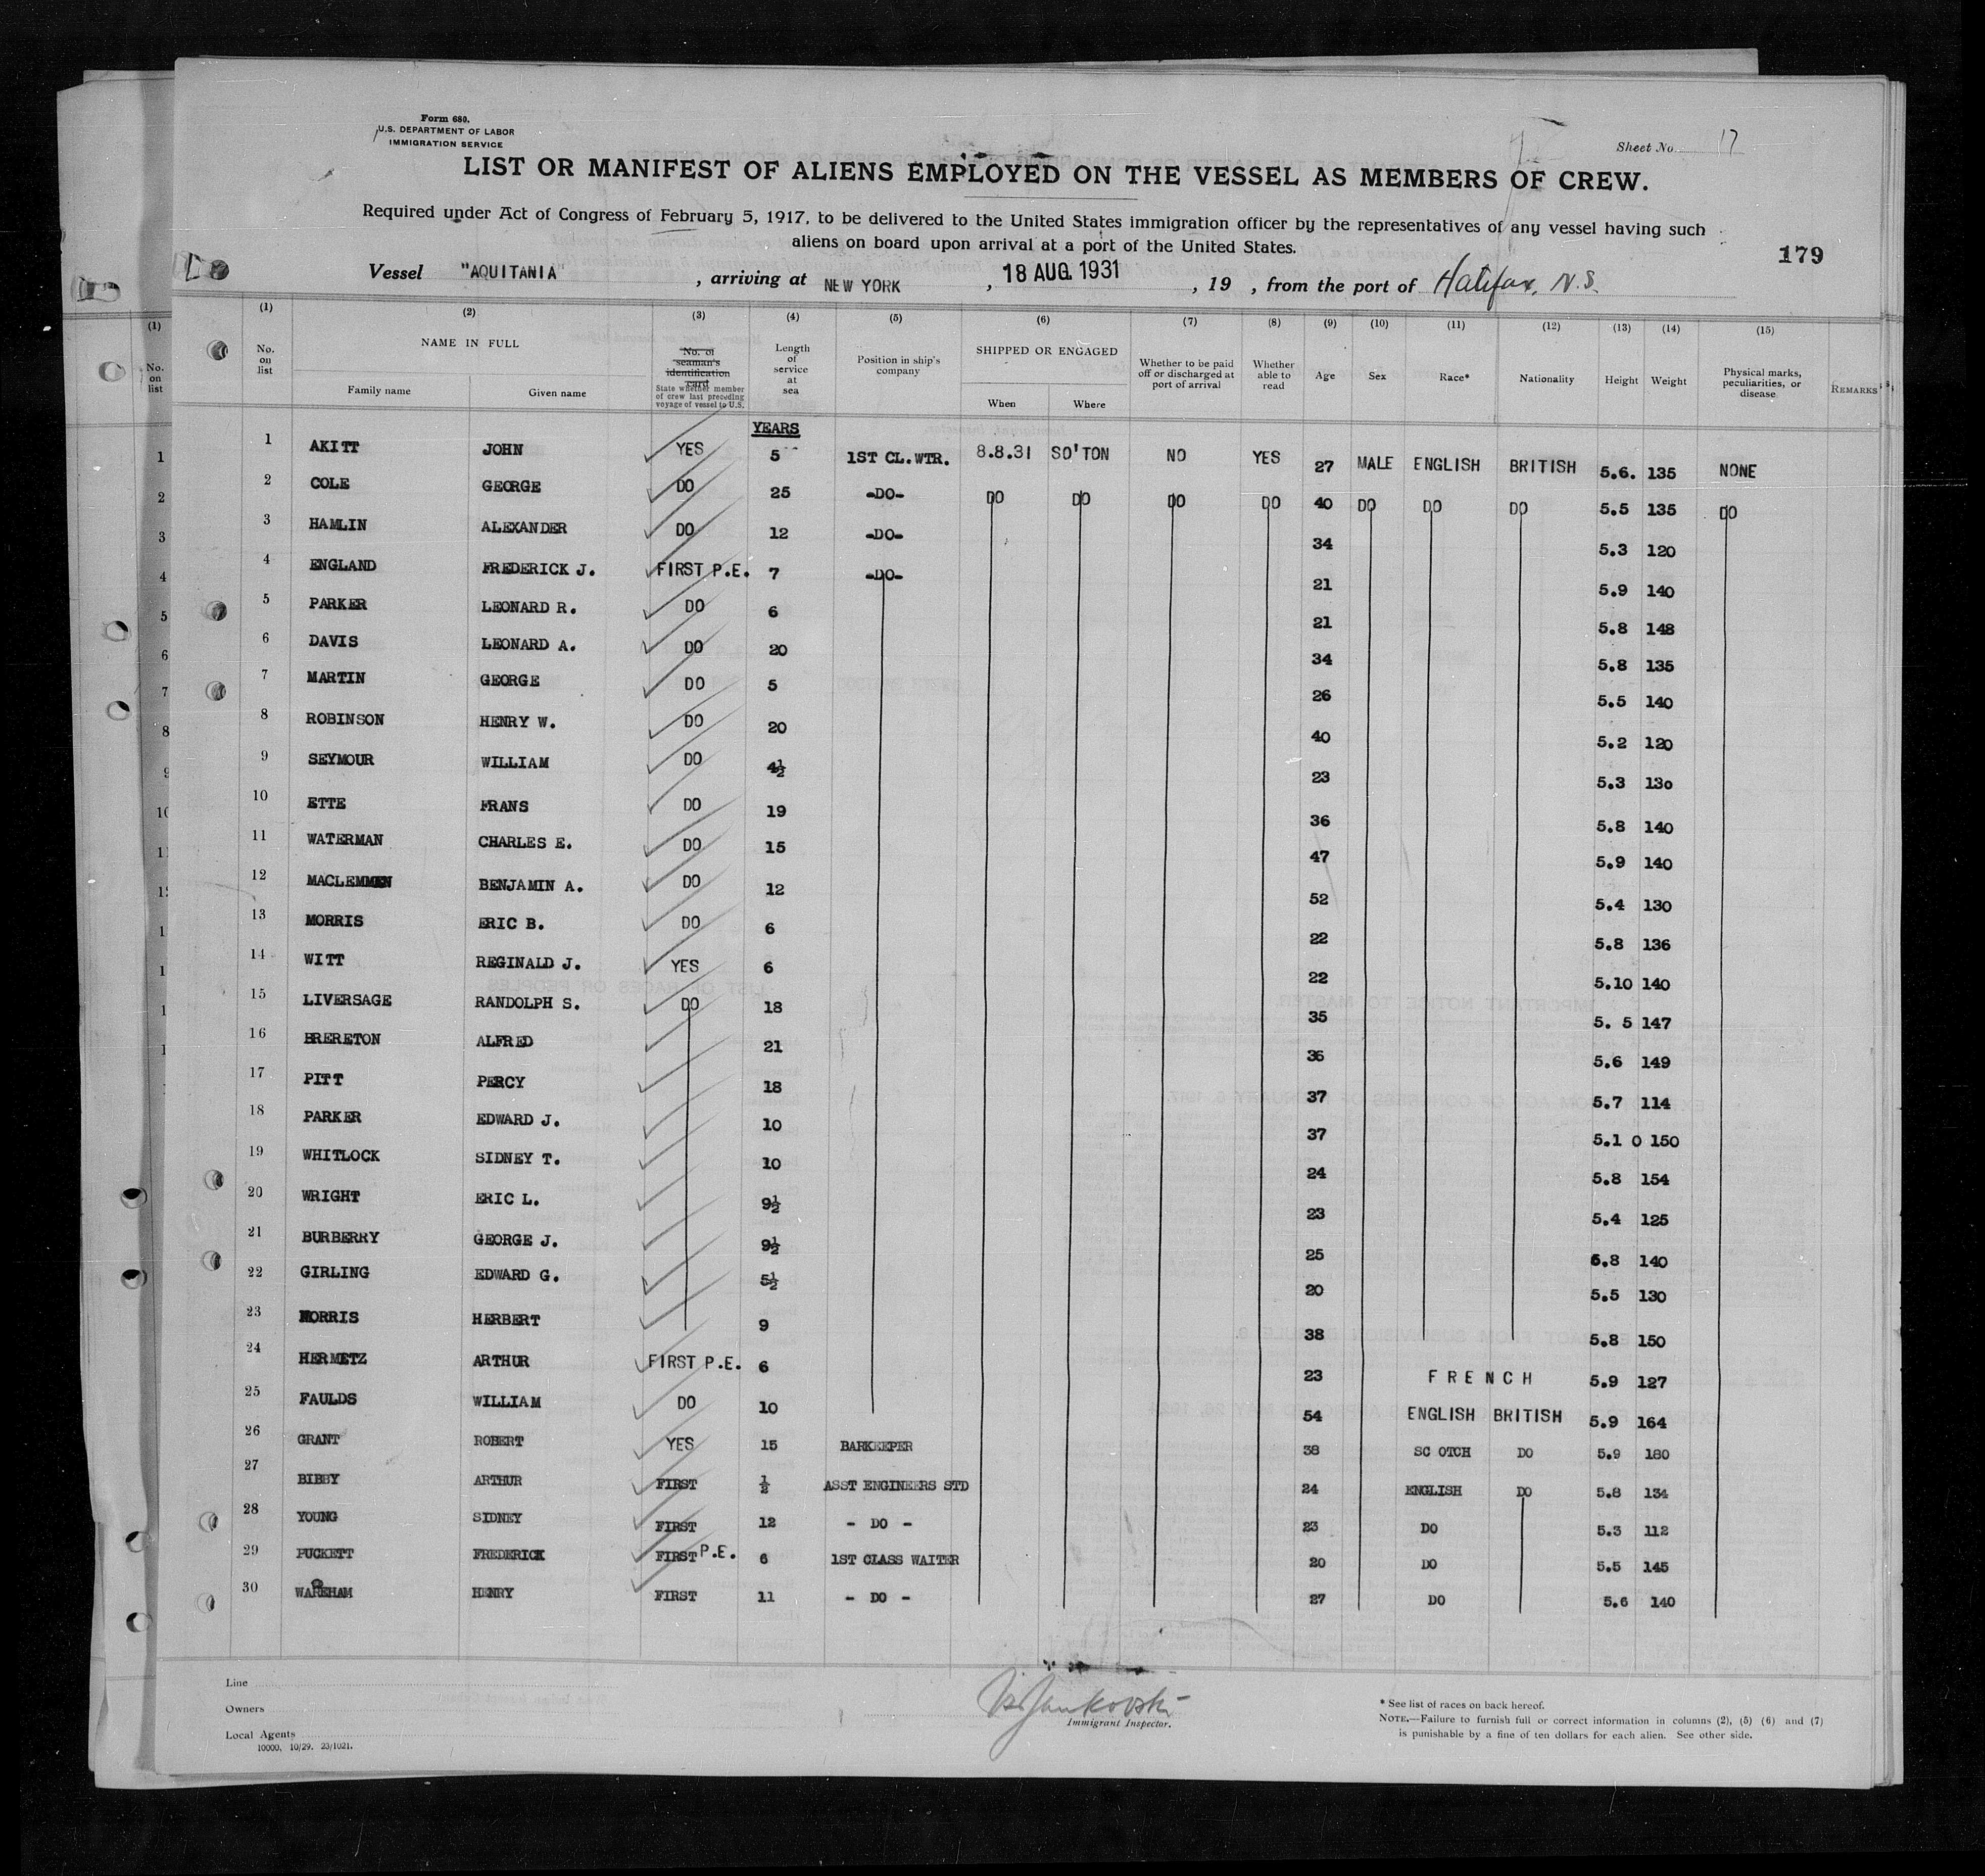 Form 680.
U.S. DEPARTMENT OF LABOR
IMMIGRATION SERVICE
Sheet No. 17
LIST OR MANIFEST OF ALIENS EMPLOYED ON THE VESSEL AS MEMBERS OF CREW.
Required under Act of Congress of February 5, 1917, to be delivered to the United States immigration officer by the representatives of any vessel having such
aliens on board upon arrival at a port of the United States.
179
Vessel "AQUITANIA" , arriving at NEW YORK , 18 AUG. 1931 , 19 , from the port of Halifax, N.S.
(1) (2) (3) (4) (5) (6) (7) (8) (9) (10) (11) (12) (13) (14) (15)
No. on list NAME IN FULL Family name Given name No. of seaman's identification card State whether member of crew last preceding voyage of vessel to U.S. Length of service at sea Position in ship's company SHIPPED OR ENGAGED When Where Whether to be paid off or discharged at port of arrival Whether able to read Age Sex Race* Nationality Height Weight Physical marks, peculiarities, or disease REMARKS
YEARS
1 AKITT JOHN YES 5 1ST CL.WTR. 8.8.31 SO'TON NO YES 27 MALE ENGLISH BRITISH 5.6. 135 NONE
2 COLE GEORGE DO 25 -DO- DO DO DO DO 40 DO DO DO 5.5 135 DO
3 HAMLIN ALEXANDER DO 12 -DO- 34 5.3 120
4 ENGLAND FREDERICK J. FIRST P.E. 7 -DO- 21 5.9 140
5 PARKER LEONARD R. DO 6 21 5.8 148
6 DAVIS LEONARD A. DO 20 34 5.8 135
7 MARTIN GEORGE DO 5 26 5.5 140
8 ROBINSON HENRY W. DO 20 40 5.2 120
9 SEYMOUR WILLIAM DO 4½ 23 5.3 130
10 ETTE FRANS DO 19 36 5.8 140
11 WATERMAN CHARLES E. DO 15 47 5.9 140
12 BENJAMIN A. DO 12 52 5.4 130
13 MORRIS ERIC B. DO 6 22 5.8 136
14 WITT REGINALD J. YES 6 22 5.10 140
15 LIVERSAGE RANDOLPH S. DO 18 35 5. 5 147
16 BRERETON ALFRED 21 36 5.6 149
17 PITT PERCY 18 37 5.7 114
18 PARKER EDWARD J. 10 37 5.1 0 150
19 WHITLOCK SIDNEY T. 10 24 5.8 154
20 WRIGHT ERIC L. 9½ 23 5.4 125
21 BURBERRY GEORGE J. 9½ 25 5.8 140
22 GIRLING EDWARD G. 5½ 20 5.5 130
23 HERBERT 9 38 5.8 150
24 HERMETZ ARTHUR FIRST P.E. 6 23 FRENCH 5.9 127
25 FAULDS WILLIAM DO 10 54 ENGLISH BRITISH 5.9 164
26 GRANT ROBERT YES 15 BARKEEPER 38 SC OTCH DO 5.9 180
27 BIBBY ARTHUR FIRST ½ ASST ENGINEERS STD 24 ENGLISH DO 5.8 134
28 YOUNG SIDNEY FIRST 12 - DO - 23 DO 5.3 112
29 PUCKETT FREDERICK FIRST P.E. 6 1ST CLASS WAITER 20 DO 5.5 145
30 WAREHAM HENRY FIRST 11 - DO - 27 DO 5.6 140
Line
Owners
Local Agents
10000, 10/29. 23/1021.
Immigrant Inspector.
* See list of races on back hereof.
NOTE.—Failure to furnish full or correct information in columns (2), (5) (6) and (7)
is punishable by a fine of ten dollars for each alien. See other side.